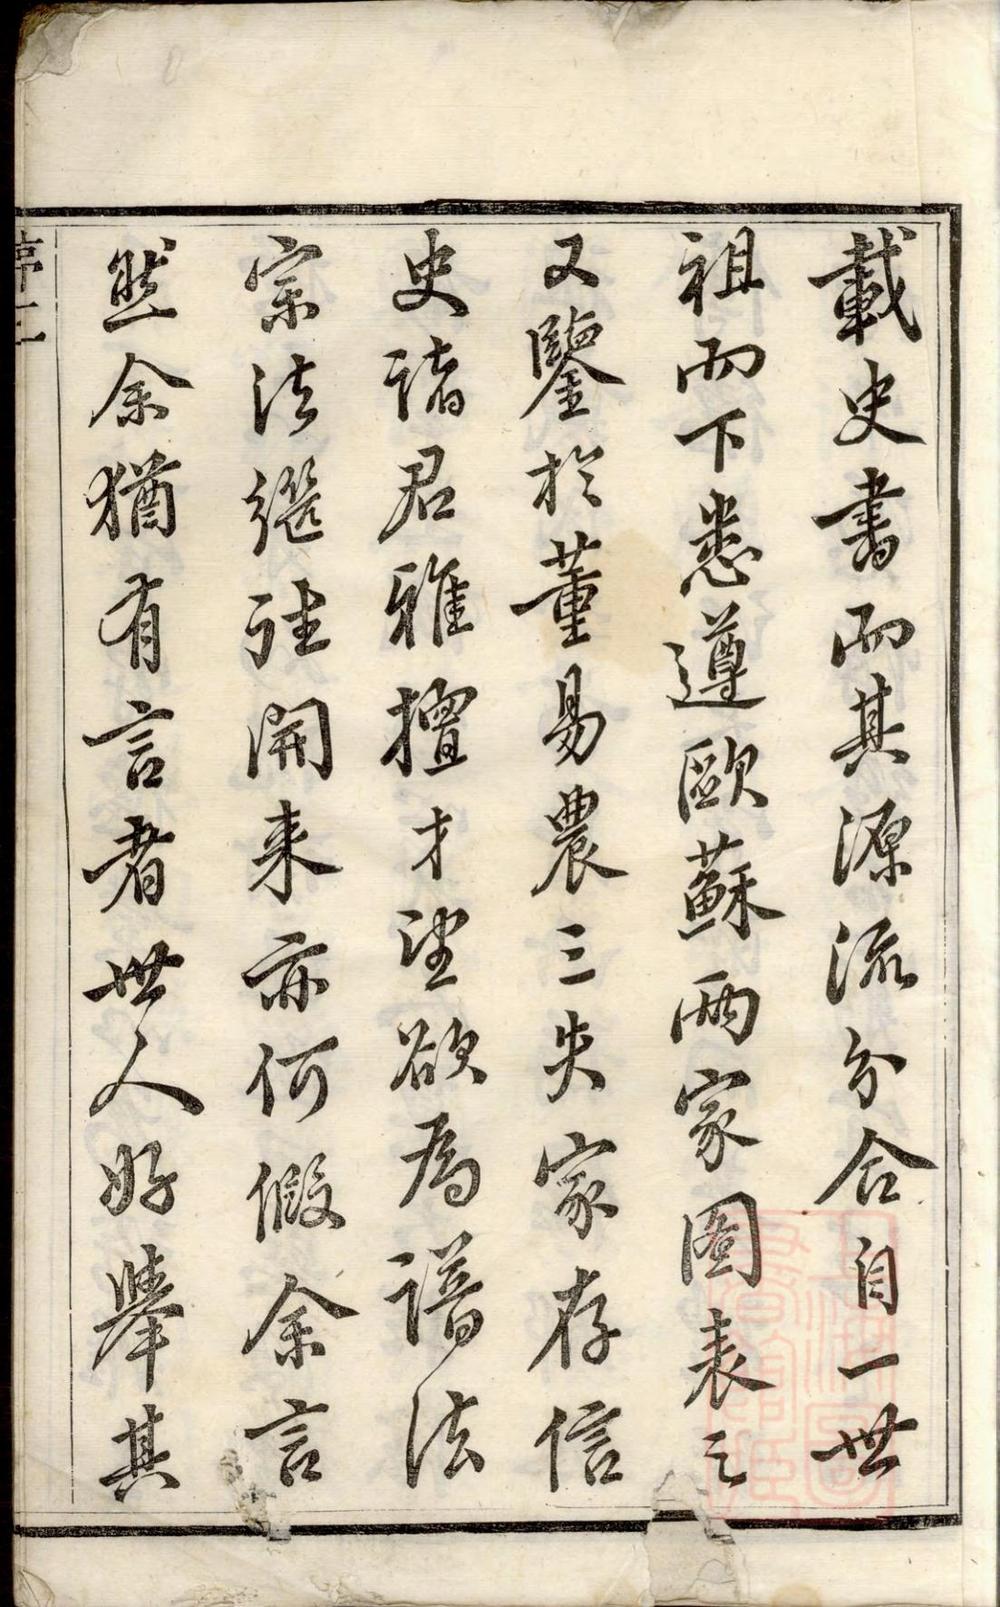 載史書而其源流分合自一世
祖而下悉遵歐蘇兩家圖表之
又鑒於董易農三失家存信
史諸君雅擅才望欲為譜法
宗法繼往開来亦何假余言
然余猶有言者世人好舉其